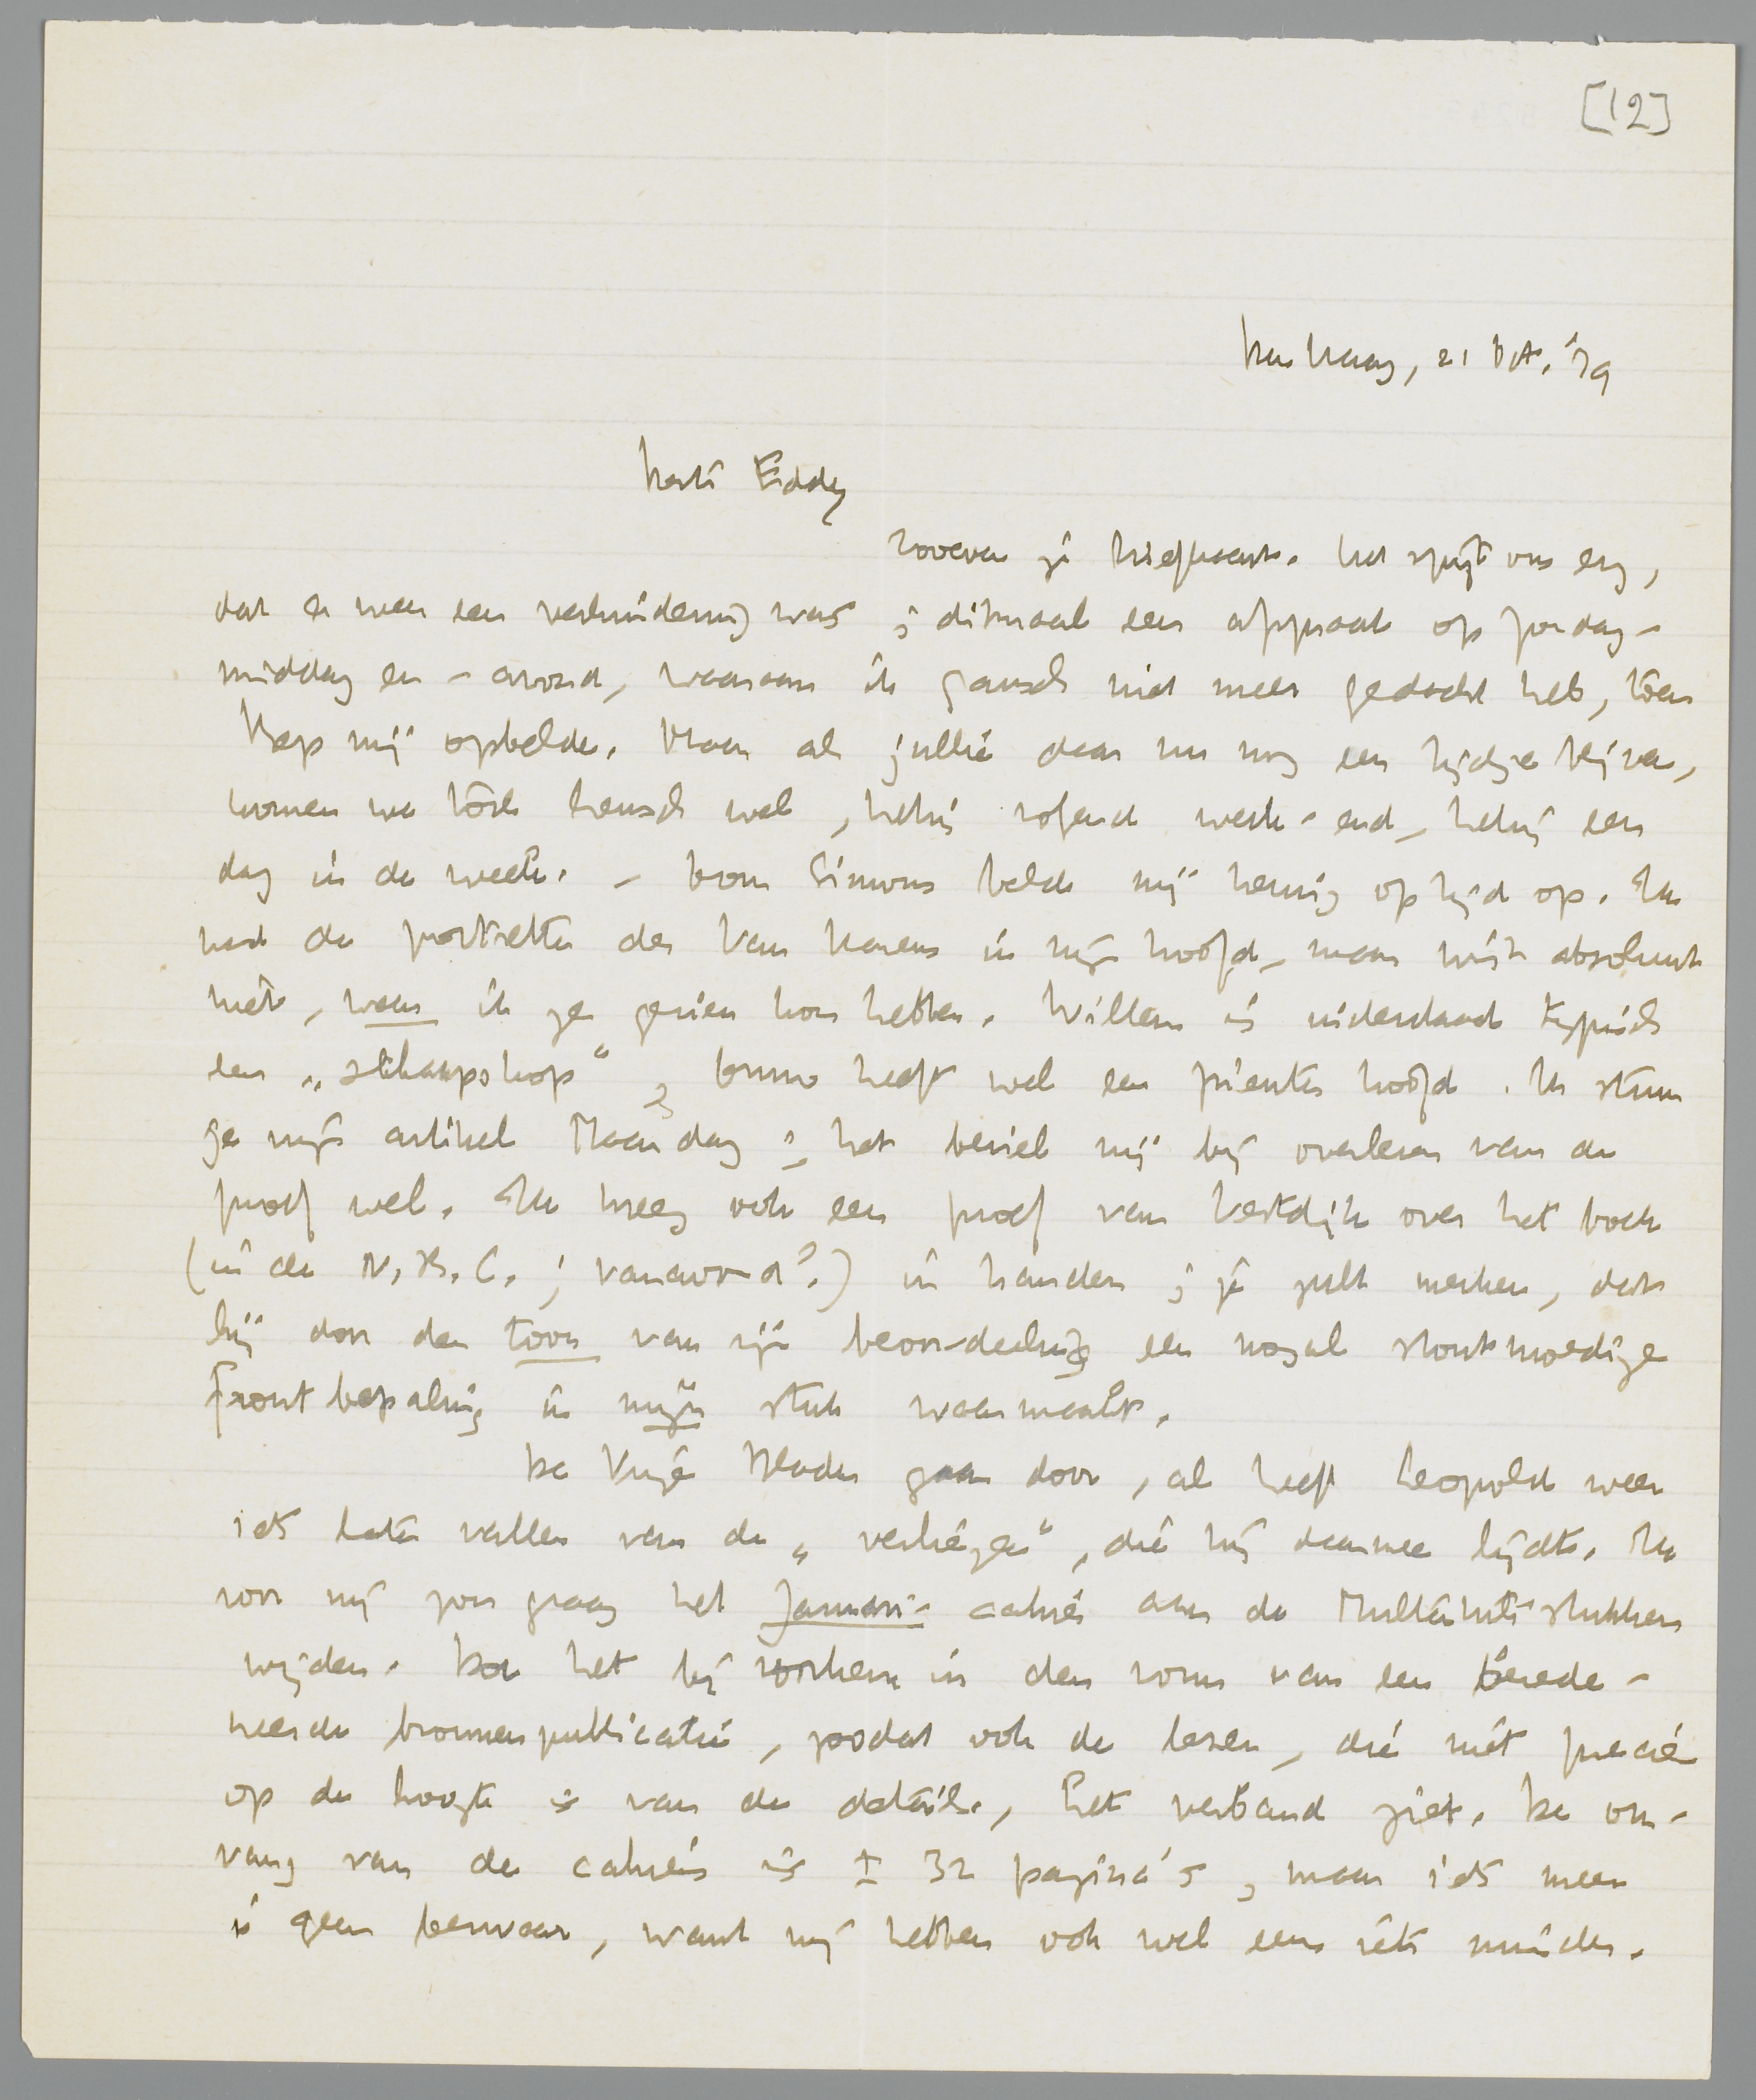 [12]
Den Haag, 21 Oct. '39
Beste Eddy
Zooeven je briefkaart. Het spijt ons erg,
dat er weer een verhindering was; ditmaal een afspraak op Zondag-
middag en -avond, waaraan ik gansch niet meer gedacht heb, toen
Bep mij opbelde. Maar als jullie daar nu nog een tijdje blijven,
komen we tòch heusch wel, hetzij volgend week-end, hetzij een
dag in de week. – Dom Simons belde mij tenauwernood op tijd op. Ik
had de portretten der Van Harens in mijn hoofd, maar wist absoluut
niet, waar ik ze gezien kon hebben. Willem is inderdaad typisch
een „schaapskop“, Onno heeft wel een pienter hoofd. Ik stuur
je mijn artikel Maandag; het beviel mij bij overlezen van de
proef wel. Ik kreeg ook een proef van Vestdijk over het boek
(in de N.R.C.; vanavond?) in handen; je zult merken, dat
hij door den toon van zijn beoordeeling een nogal stoutmoedige
frontbepaling in mijn stuk waarmaakt.
De Vrije Bladen gaan door, al heeft Leopold weer
iets laten vallen van de „verliezen“, die hij daarmee lijdt. Ik
voor mij zou graag het Januari-cahier aan de Multatuli-stukken
wijden. Doe het bij voorkeur in den vorm van een berede-
neerde bronnenpublicatie, zoodat ook de lezer, die niet precies
op de hoogte is van de details, het verband ziet. De om-
vang van de cahiers is ± 32 pagina's, maar iets meer
is geen bezwaar, want wij hebben ook wel eens iets minder.